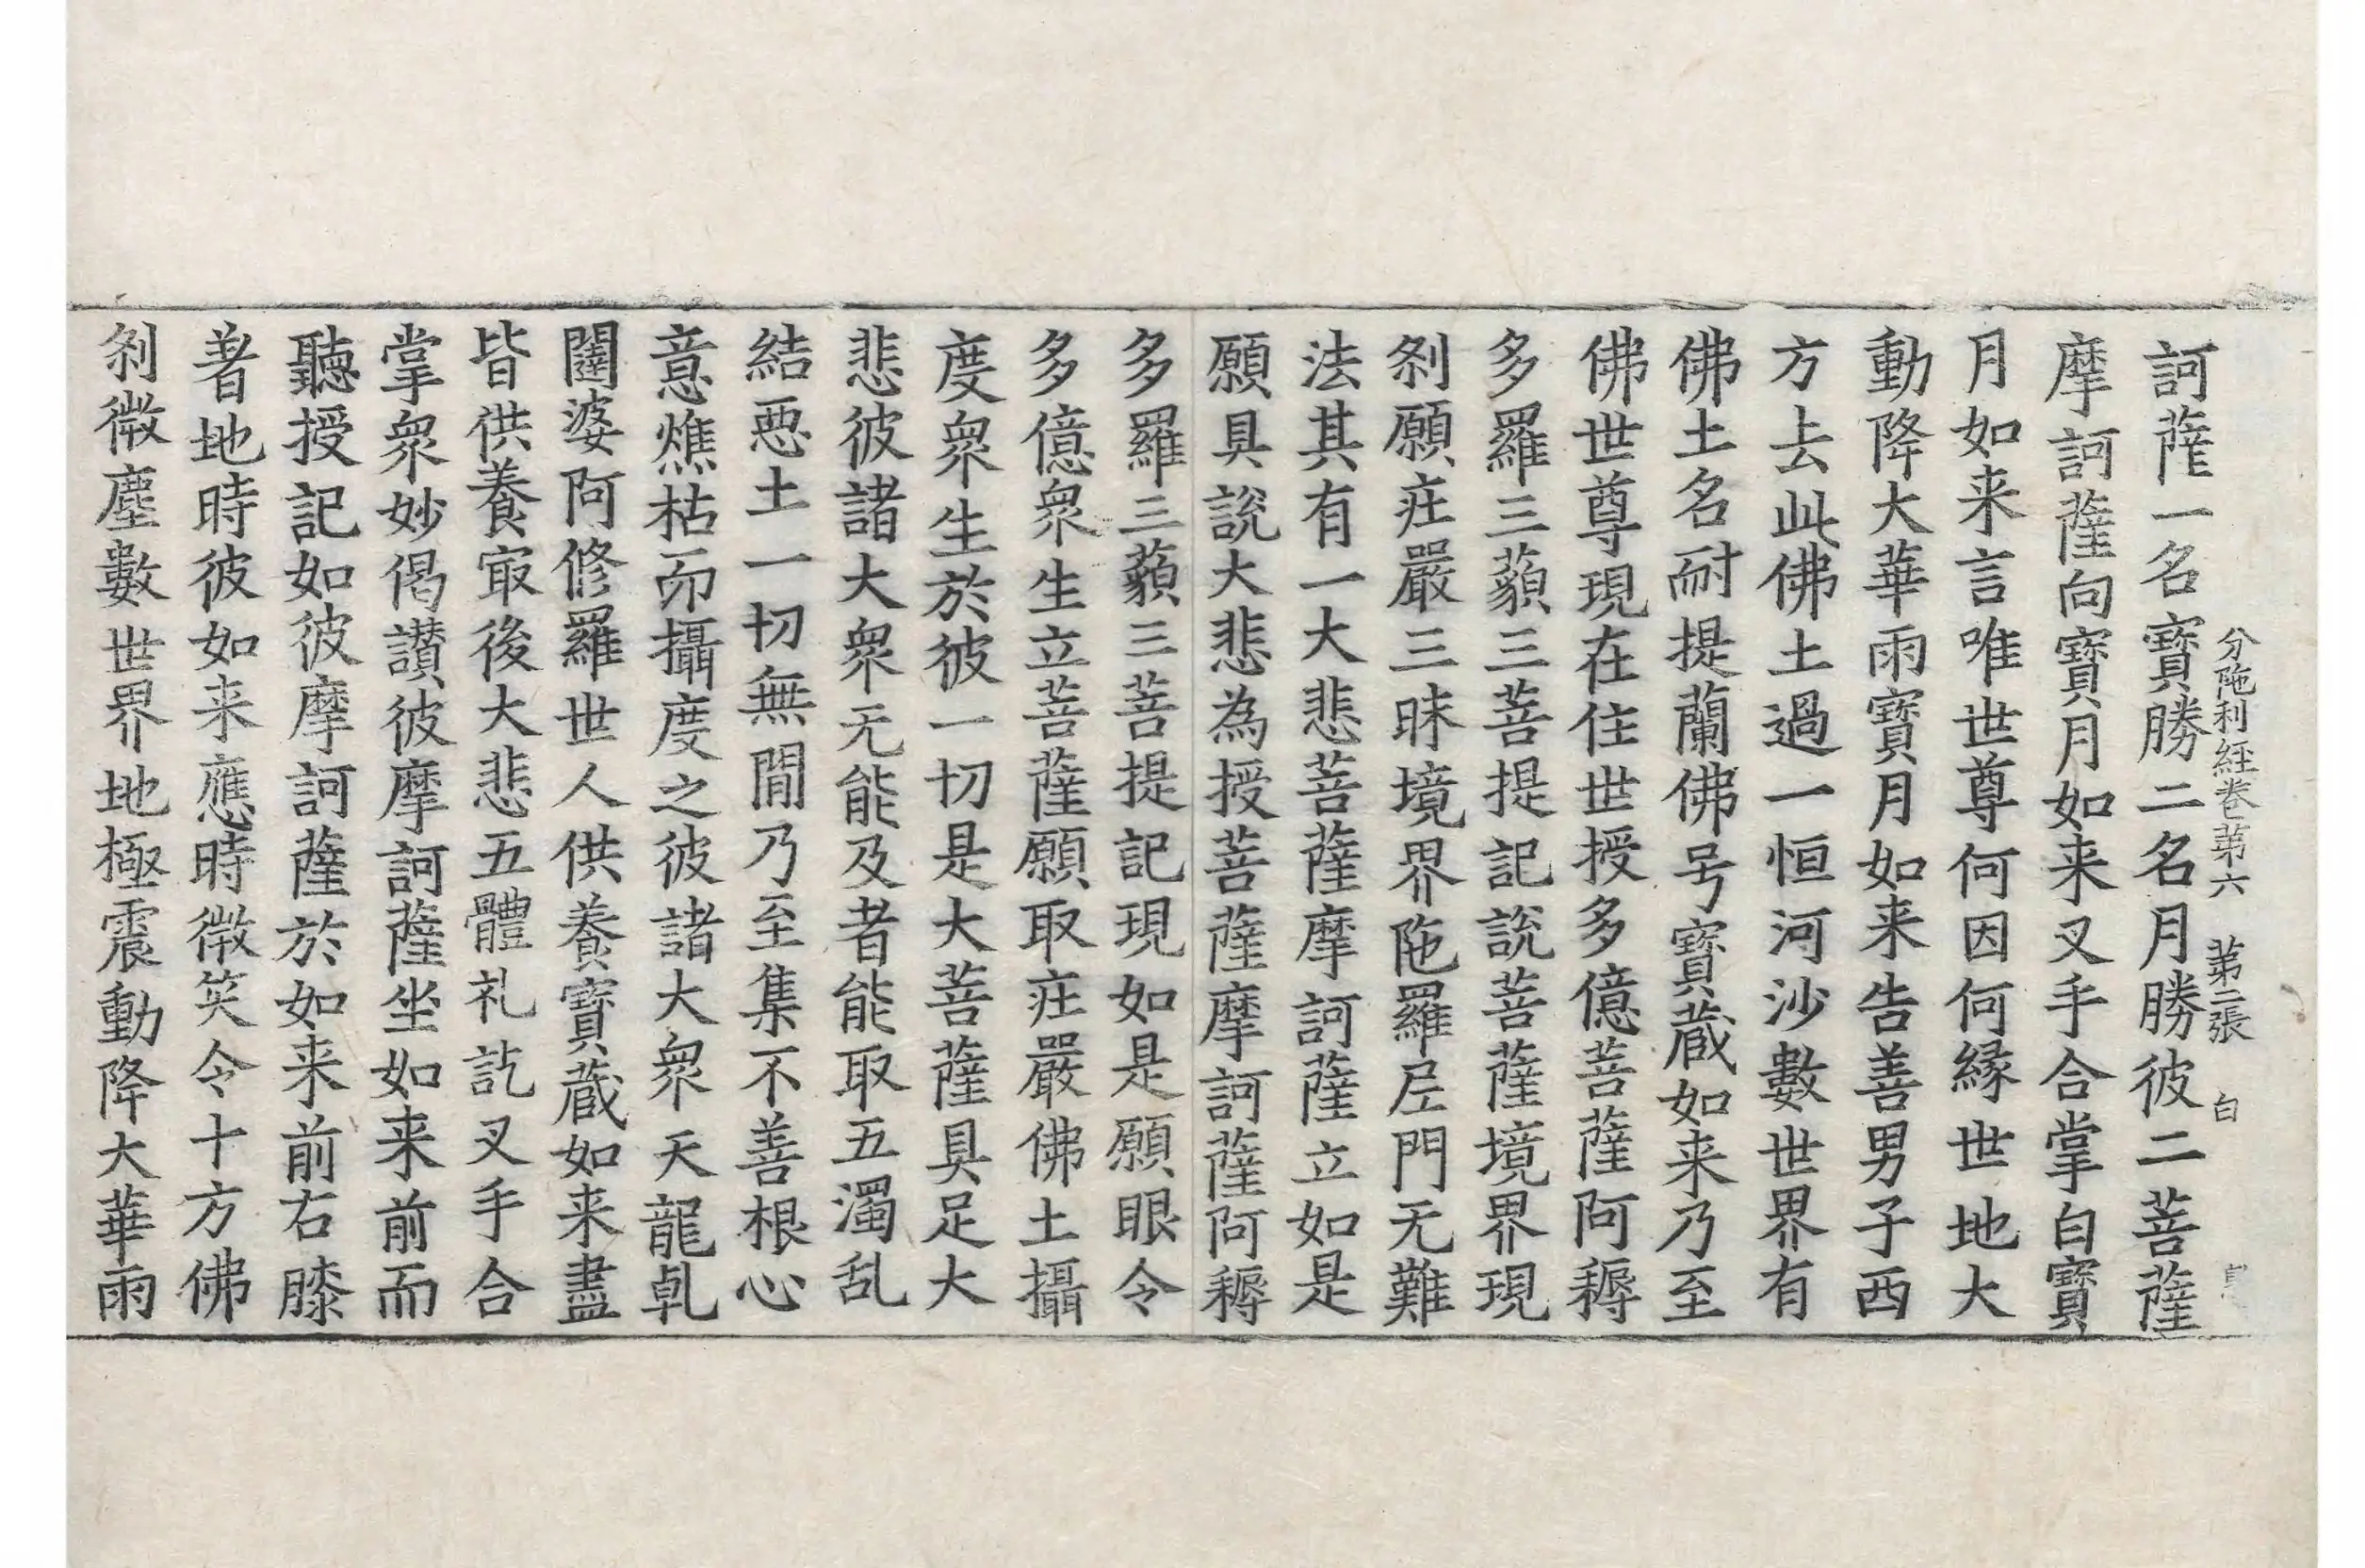 分陁利経卷第六 第二張 白
訶薩一名寶勝二名月勝彼二菩薩
摩訶薩向寶月如来叉手合掌白寶
月如来言唯世尊何因何緣世地大
動降大華雨寶月如来告善男子西
方去此佛土過一恒河沙數世界有
佛土名耐提蘭佛号寶蔵如来乃至
佛世尊現在住世授多億菩薩阿耨
多羅三藐三菩提記說菩薩境界現
刹願莊嚴三昧境界陁羅尼門无難
法其有一大悲菩薩摩訶薩立如是
願具說大悲為授菩薩摩訶薩阿耨
多羅三藐三菩提記現如是願眼令
多億衆生立菩薩願取莊嚴佛土攝
度衆生於彼一切是大菩薩具足大
悲彼諸大衆无能及者能取五濁乱
結惡土一切無間乃至集不善根心
意燋枯而攝度之彼諸大衆天龍乹
闥婆阿修羅世人供養寶蔵如来盡
皆供養㝡後大悲五體礼訖叉手合
掌衆妙偈讃彼摩訶薩坐如来前而
聽授記如彼摩訶薩於如来前右膝
著地時彼如来應時微笑令十方佛
刹微塵數世界地極震動降大華雨